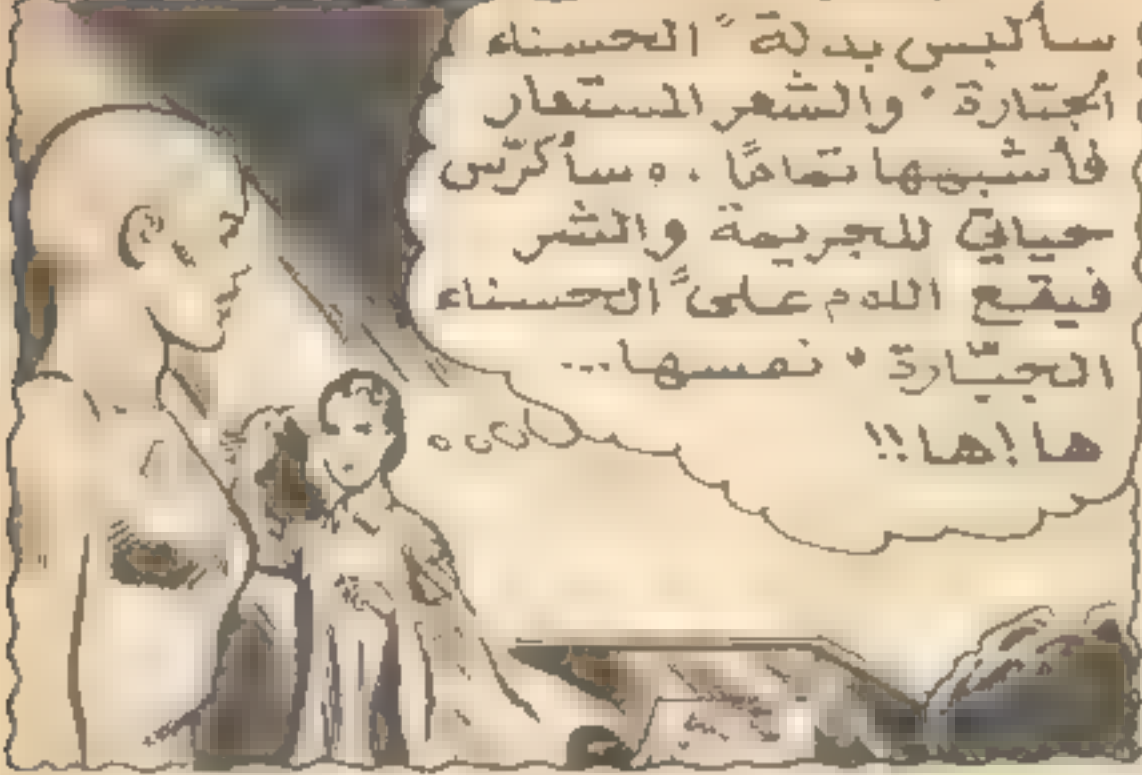 سألبس بدلة "الحسناء
الجبّارة" والشعر المستعار
فأشبهها تمامًا .. سأكرّس
حياتي للجريمة والشر
فيقع اللوم على "الحسناء
الجبّارة" نفسها...
ها! ها!!